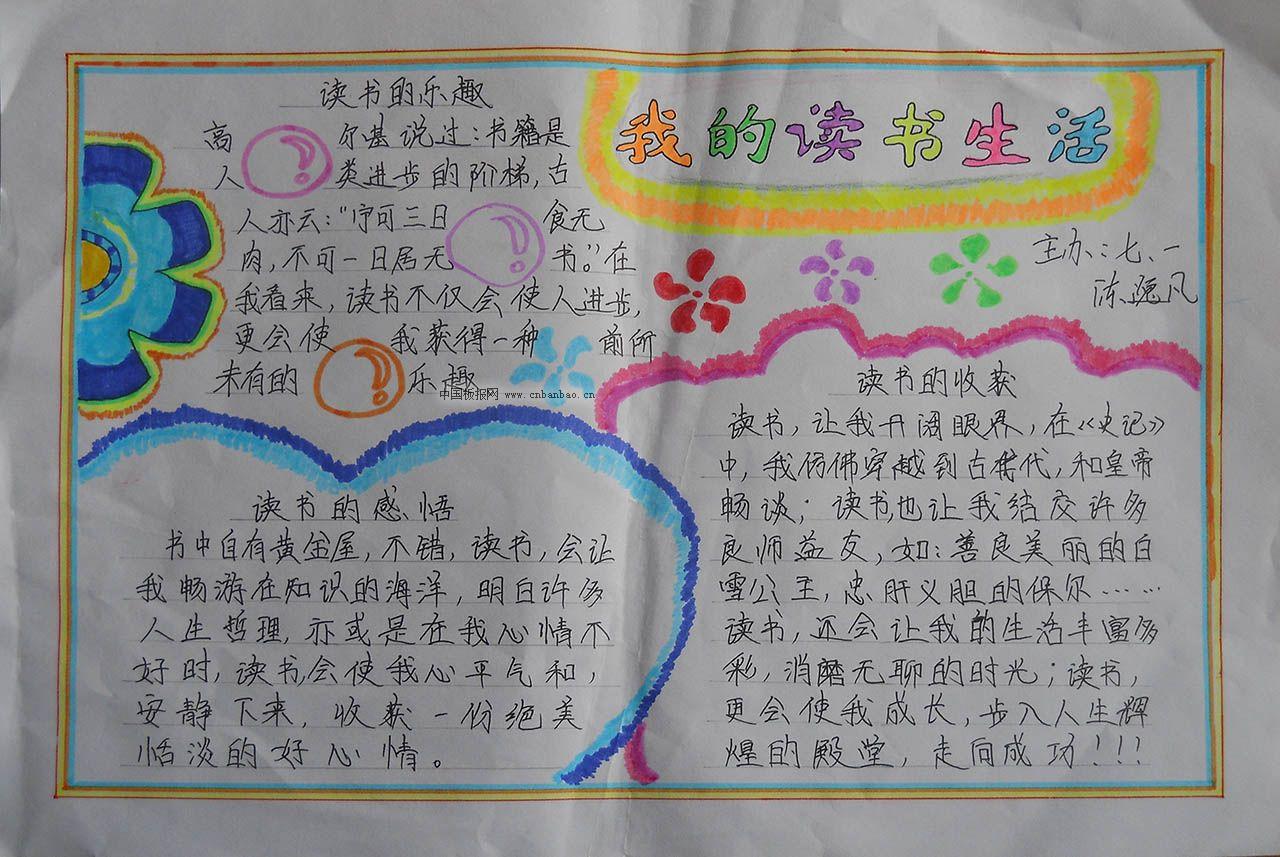 我的读书生活
主办:七、一
陈逸凤
读书的乐趣
高尔基说过:书籍是
人类进步的阶梯,古
人亦云:"宁可三日食无
肉,不可一日居无书。"在
我看来,读书不仅会使人进步,
更会使我获得一种前所
未有的乐趣
中国板报网 www.cnbanbao.cn
读书的感悟
书中自有黄金屋,不错,读书,会让
我畅游在知识的海洋,明白许多
人生哲理,亦或是在我心情不
好时,读书,会使我心平气和,
安静下来,收获一份绝美
恬淡的好心情。
读书的收获
读书,让我开阔眼界,在《史记》
中,我仿佛穿越到古代,和皇帝
畅谈;读书,也让我结交许多
良师益友,如:善良美丽的白
雪公主,忠肝义胆的保尔……
读书,还会让我的生活丰富多
彩,消磨无聊的时光;读书,
更会使我成长,步入人生辉
煌的殿堂,走向成功!!!